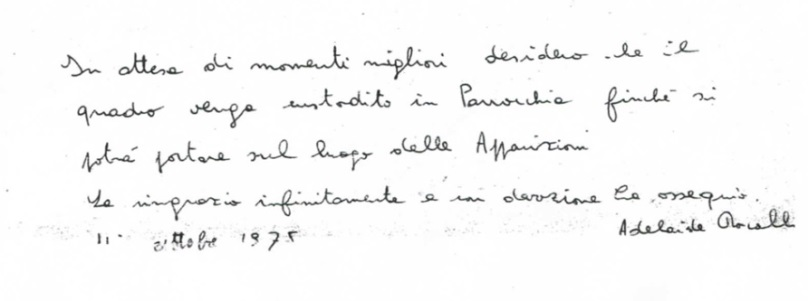 In attesa di momenti migliori desidero che il
quadro venga custodito in Parrocchia finché si
potrà portare sul luogo delle Apparizioni
La ringrazio infinitamente e con devozione La ossequio.
11 ottobre 1975 Adelaide Roncalli